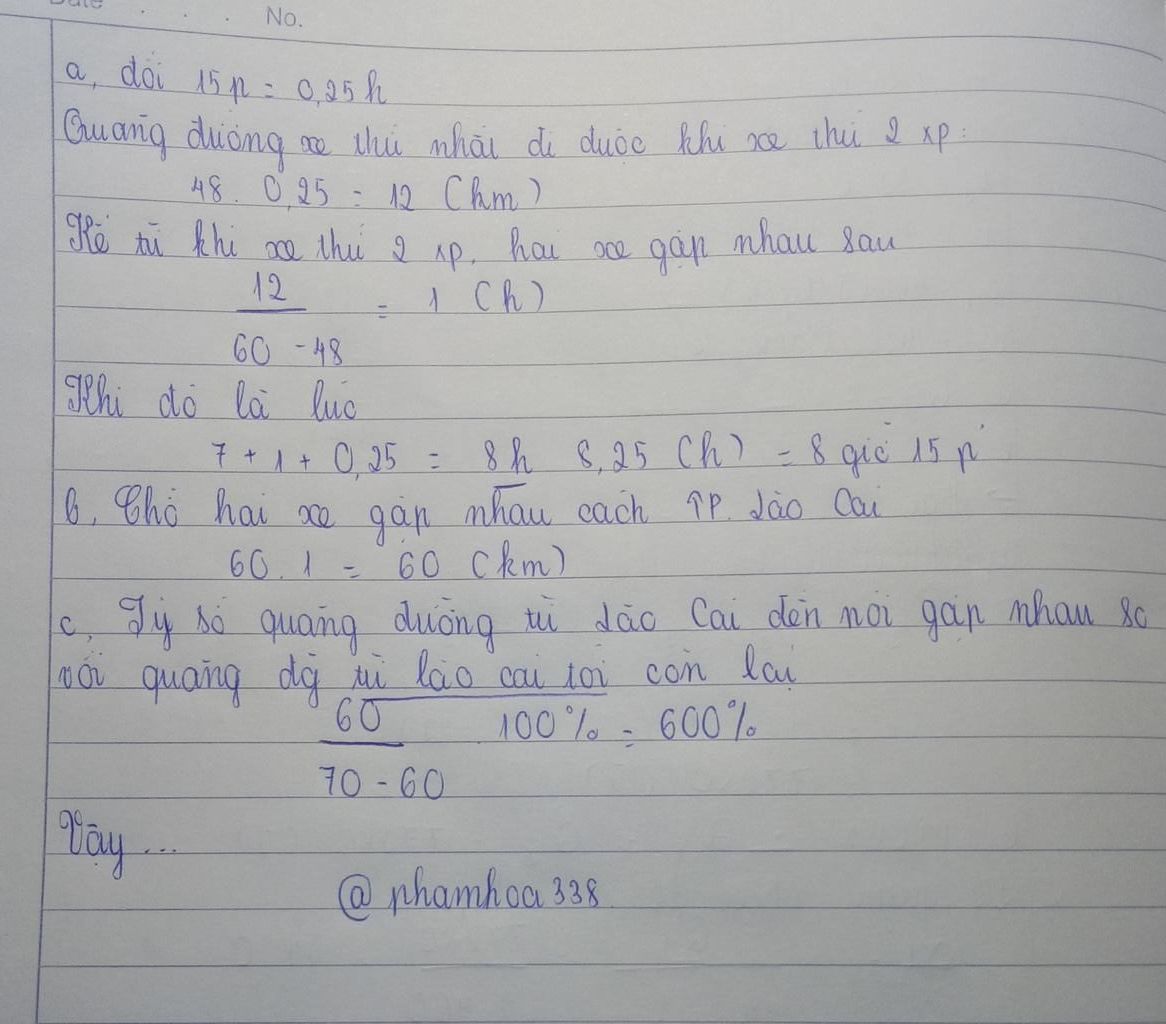 Date . . . No.
a, đổi 15p = 0,25h
Quãng đường xe thứ nhất đi được khi xe thứ 2 xp:
48. 0,25 = 12 (km)
Kể từ khi xe thứ 2 xp, hai xe gặp nhau sau
12 / 60 - 48 = 1 (h)
Khi đó là lúc
7 + 1 + 0,25 = 8h 8,25 (h) = 8 giờ 15 p
b, Chỗ hai xe gặp nhau cách TP. Lào Cai
60. 1 = 60 (km)
c, Tỷ số quãng đường từ Lào Cai đến nơi gặp nhau so
với quãng đg từ lào cai tới còn lại
60 / 70 - 60 100% = 600%
Vậy ...
@ phamhoa338